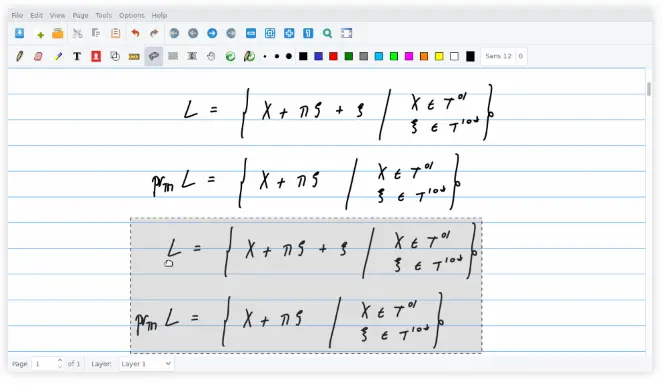 File Edit View Page Tools Options Help
T
Sans 12 0
L = { X + πξ + ξ | X ∈ T⁰¹
ξ ∈ T¹⁰* }
pr_m L = { X + πξ | X ∈ T⁰¹
ξ ∈ T¹⁰* }
L = { X + πξ + ξ | X ∈ T⁰¹
ξ ∈ T¹⁰* }
pr_m L = { X + πξ | X ∈ T⁰¹
ξ ∈ T¹⁰* }
Page 1 of 1 Layer: Layer 1